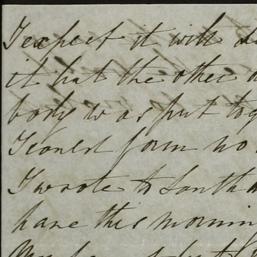 I expect it will
it but the other
body was put tog
I could form no
I wrote to South
have this morning